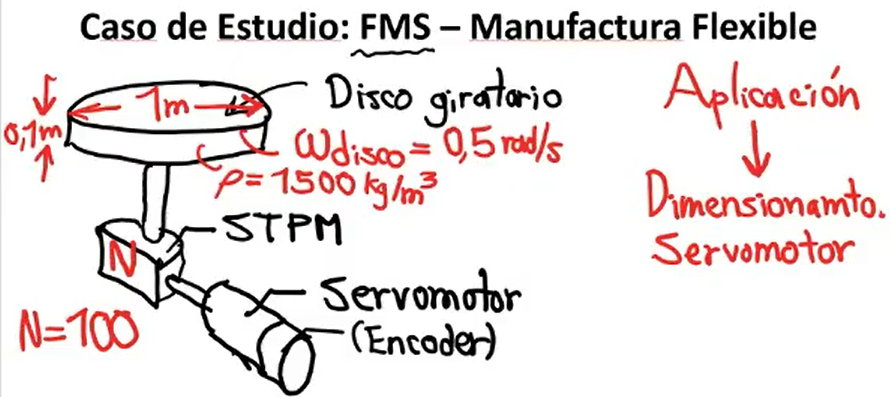 Caso de Estudio: FMS – Manufactura Flexible
1m
0,1m
Disco giratorio
ωdisco = 0,5 rad/s
ρ = 1500 kg/m³
STPM
N
Servomotor
(Encoder)
N=100
Aplicación
Dimensionamto.
Servomotor